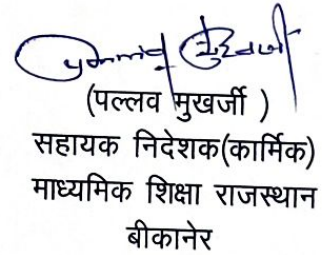 (पल्लव मुखर्जी )
सहायक निदेशक(कार्मिक)
माध्यमिक शिक्षा राजस्थान
बीकानेर